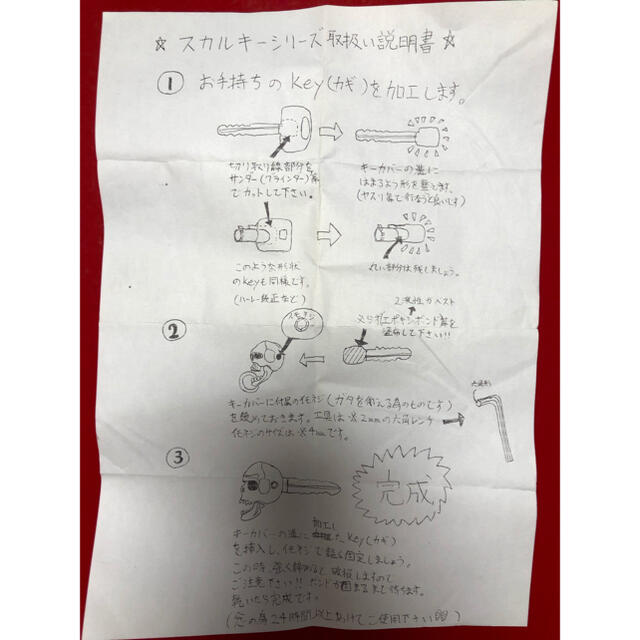 ☆ スカルキーシリーズ取扱い説明書 ☆
① お手持ちの Key(カギ)を加工します。
切り取り線部分を
サンダー(グラインダー)等
でカットして下さい。
キーカバーの溝に
はまるよう形を整えます。
(ヤスリ等で行なうと良いです)
このような形状
のKeyも同様です。
(ハーレー純正など)
部分は残しましょう。
2液性がベスト
エポキシボンド等を
塗布して下さい!!
②
イモネジ
キーカバーに付属のイモネジ(ガタを抑える為のものです)
を緩めておきます。工具は※2mmの六角レンチ
イモネジのサイズは※4mmです。
③
完成
キーカバーの溝に加工したKey(カギ)
を挿入し、イモネジで軽く固定しましょう。
この時、強く締めると破損しますので
ご注意ください!! ボンドが固まるまで待ちます。
乾いたら完成です。
(念の為24時間以上あけてご使用下さい)